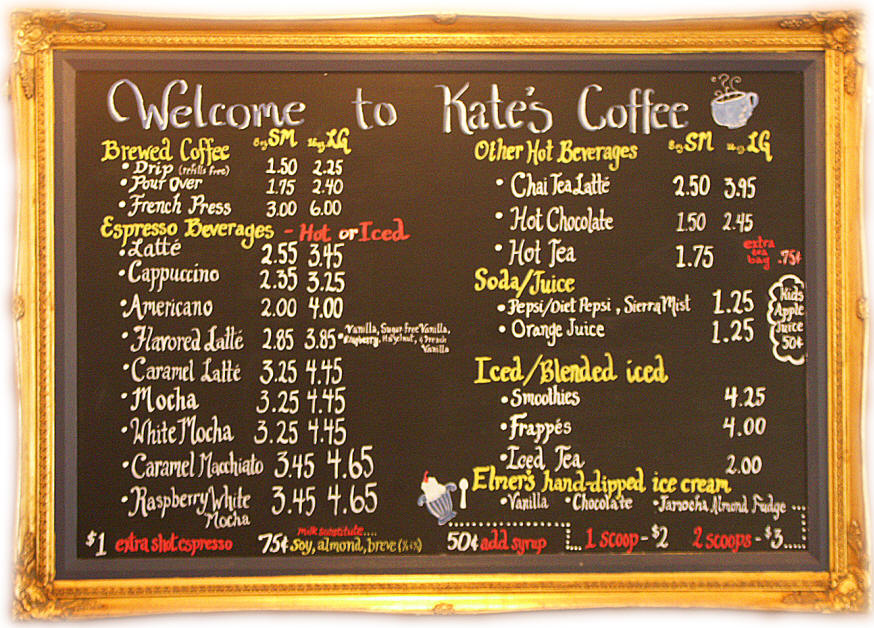 Welcome to Kate's Coffee
Brewed Coffee 8oz SM 16oz LG
• Drip (refills free) 1.50 2.25
• Pour Over 1.75 2.40
• French Press 3.00 6.00
Espresso Beverages - Hot or Iced
• Latté 2.55 3.45
• Cappuccino 2.35 3.25
• Americano 2.00 4.00
• Flavored Latté 2.85 3.85 • Vanilla, Sugar Free Vanilla,
Raspberry, Hazelnut, & French
Vanilla
• Caramel Latté 3.25 4.45
• Mocha 3.25 4.45
• White Mocha 3.25 4.45
• Caramel Macchiato 3.45 4.65
• Raspberry White
Mocha 3.45 4.65
$1 extra shot espresso
milk substitute....
75¢ soy, almond, breve
Other Hot Beverages 8oz SM 16oz LG
• Chai Tea Latté 2.50 3.95
• Hot Chocolate 1.50 2.45
• Hot Tea 1.75
extra
tea
bag .75¢
Soda/Juice
• Pepsi/Diet Pepsi, Sierra Mist 1.25
• Orange Juice 1.25
Kids
Apple
Juice
50¢
Iced/Blended iced
• Smoothies 4.25
• Frappés 4.00
• Iced Tea 2.00
Elmer's hand-dipped ice cream
• Vanilla • Chocolate • Jamocha Almond Fudge
50¢ add syrup
1 scoop - $2 2 scoops - $3